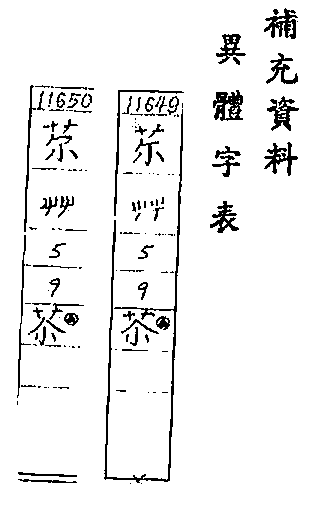 補充資料
異體字表
11649
艸
5
9
苶
11650
艸
5
9
苶